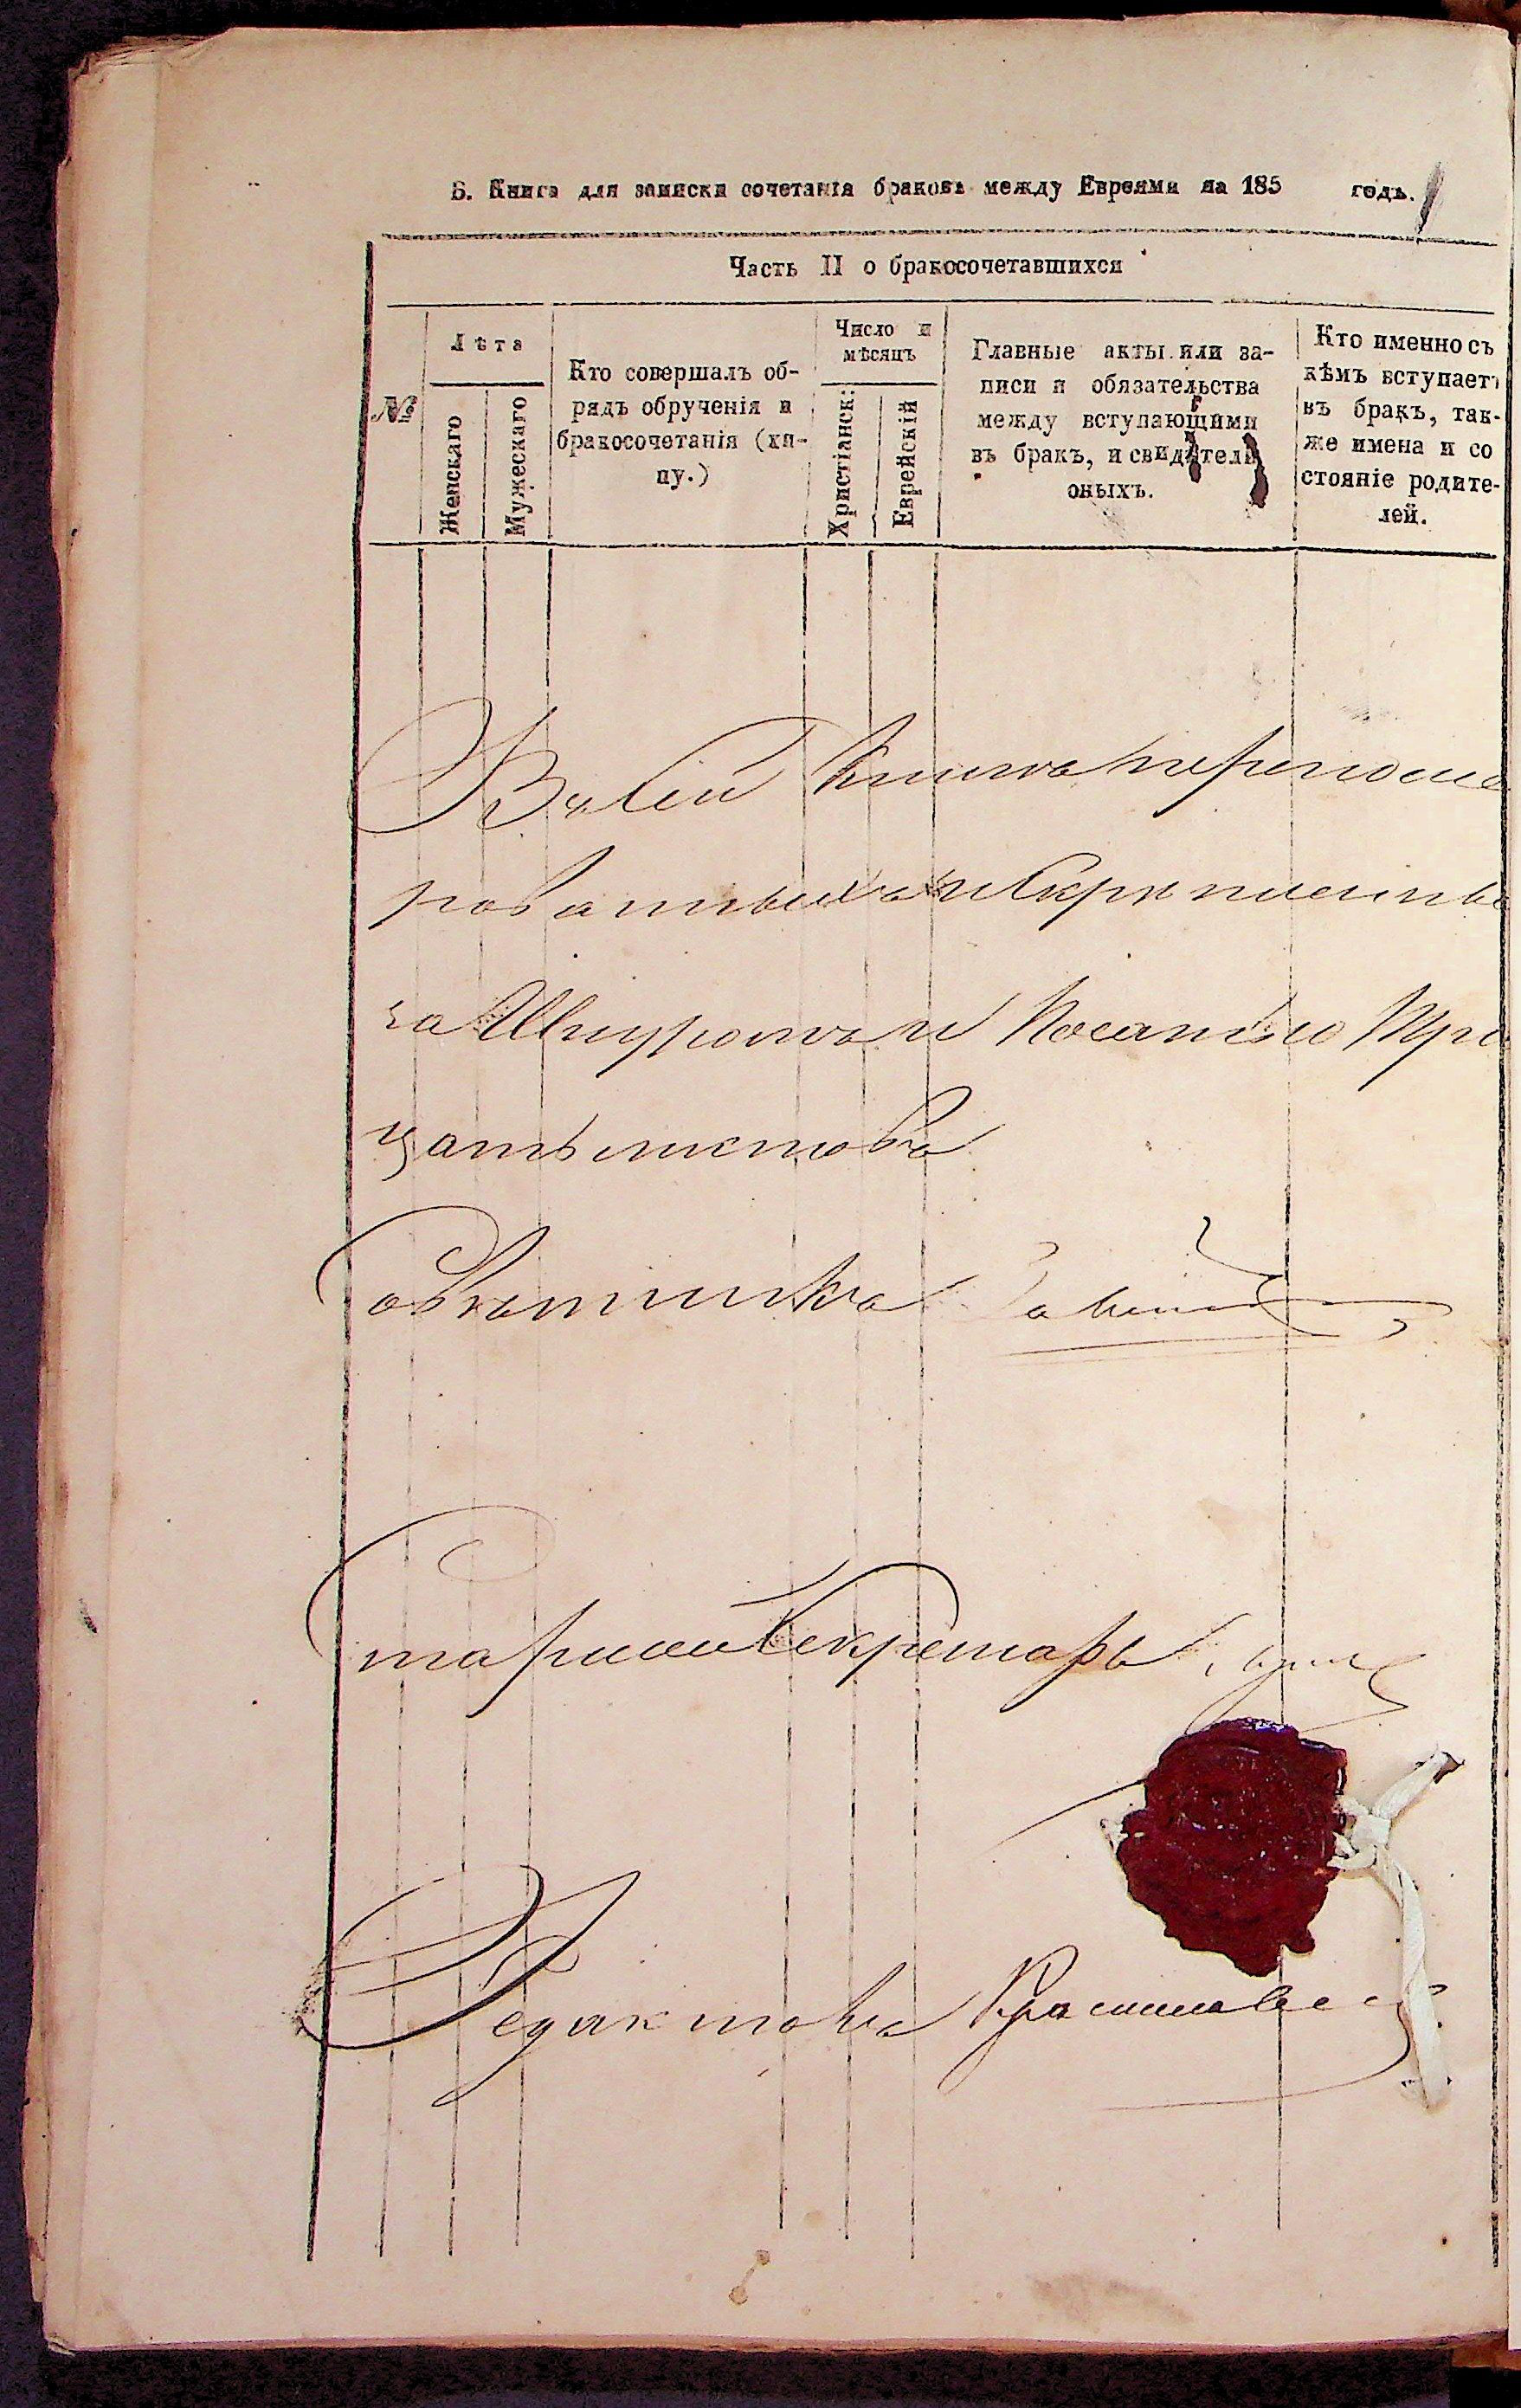 Б. Книга для записки сочетанія браковъ между Евреями на 185 годъ.
Часть II о бракосочетавшихся
№
Лѣта
Женскаго
Мужескаго
Кто совершалъ об-
рядъ обрученія и
бракосочетанія (хи-
пу.)
Число и
мѣсяцъ
Христіанск:
Еврейскій
Главные акты или за-
писи и обязательства
между вступающими
въ бракъ, и свидѣтели
оныхъ.
Кто именно съ
кѣмъ вступаетъ
въ бракъ, так-
же имена и со
стояніе родите-
лей.
Въ сей Книгѣ перенуме
рованныхъ и скрѣпленны
за Шнуромъ и Печатью Три
цать листовъ
Совѣтникъ
Старшій Секретарь
Редакторъ